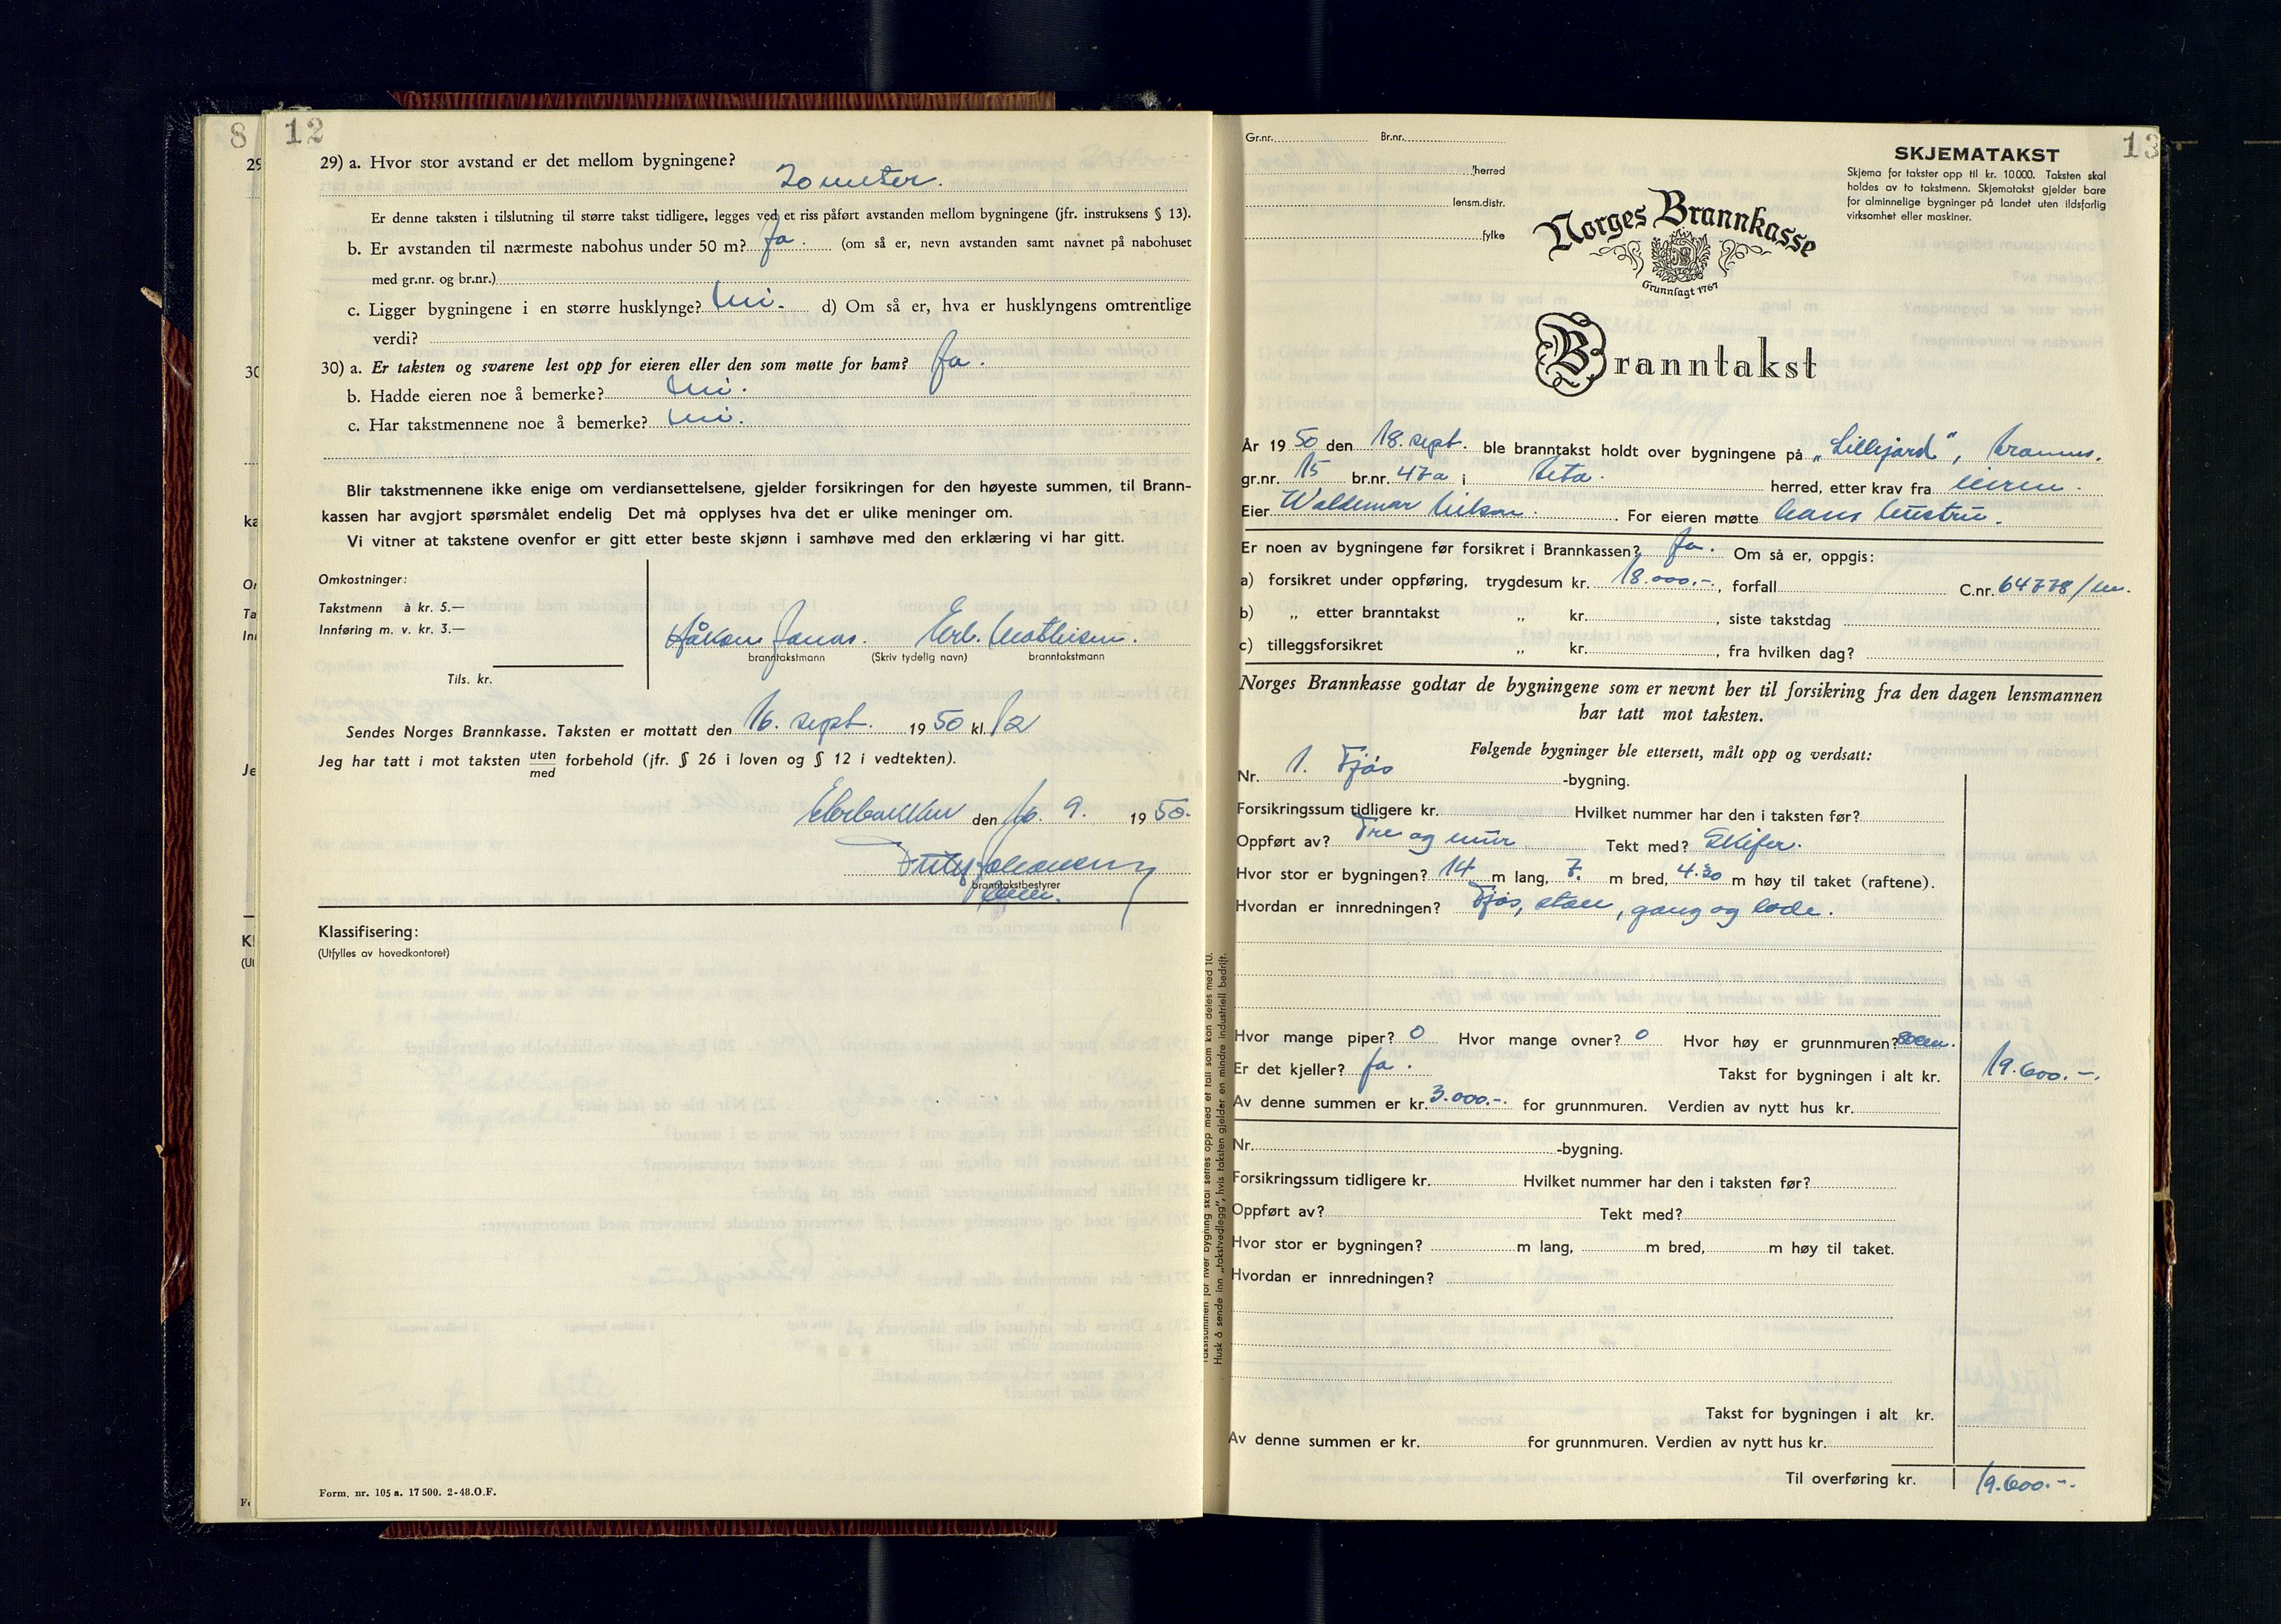 8
12
29) a. Hvor stor avstand er det mellom bygningene?
20 meter.
Er denne taksten i tilslutning til større takst tidligere, legges ved et riss påført avstanden mellom bygningene (jfr. instruksens § 13).
b. Er avstanden til nærmeste nabohus under 50 m? Ja. (om så er, nevn avstanden samt navnet på nabohuset
med gr.nr. og br.nr.)
c. Ligger bygningene i en større husklynge? Nei. d) Om så er, hva er husklyngens omtrentlige
verdi?
30) a. Er taksten og svarene lest opp for eieren eller den som møtte for ham? Ja.
b. Hadde eieren noe å bemerke? Nei.
c. Har takstmennene noe å bemerke? Nei.
Blir takstmennene ikke enige om verdiansettelsene, gjelder forsikringen for den høyeste summen, til Brann-
kassen har avgjort spørsmålet endelig Det må opplyses hva det er ulike meninger om.
Vi vitner at takstene ovenfor er gitt etter beste skjønn i samhøve med den erklæring vi har gitt.
Omkostninger:
Takstmenn à kr. 5.—
Innføring m. v. kr. 3.—
Tils. kr.
Håkon Janas. Erl. Mathisen.
branntakstmann (Skriv tydelig navn) branntakstmann
Sendes Norges Brannkasse. Taksten er mottatt den 16. sept. 1950 kl. 12
Jeg har tatt i mot taksten uten med forbehold (jfr. § 26 i loven og § 12 i vedtekten).
Elvebakken den 16. 9. 1950.
branntakstbestyrer
Klassifisering:
(Utfylles av hovedkontoret)
Form. nr. 105 a. 17 500. 2-48.O.F.
13
Gr.nr. Br.nr.
herred
lensm.distr.
fylke
SKJEMATAKST
Skjema for takster opp til kr. 10 000. Taksten skal
holdes av to takstmenn. Skjematakst gjelder bare
for alminnelige bygninger på landet uten ildsfarlig
virksomhet eller maskiner.
Norges Brannkasse
Grunnlagt 1767
Branntakst
År 1950 den 18. sept. ble branntakst holdt over bygningene på „Lillejord",
gr.nr. 15 br.nr. 47a i Alta. herred, etter krav fra eieren.
Eier Waldemar Nilsen. For eieren møtte Hans
Er noen av bygningene før forsikret i Brannkassen? Ja. Om så er, oppgis:
a) forsikret under oppføring, trygdesum kr. 18.000.-, forfall C.nr. 64778/
b) „ etter branntakst „ kr. , siste takstdag
c) tilleggsforsikret „ kr. , fra hvilken dag?
Norges Brannkasse godtar de bygningene som er nevnt her til forsikring fra den dagen lensmannen
har tatt mot taksten.
Følgende bygninger ble ettersett, målt opp og verdsatt:
Nr. 1. Fjøs -bygning.
Forsikringssum tidligere kr. Hvilket nummer har den i taksten før?
Oppført av? Tre og mur Tekt med? Skifer.
Hvor stor er bygningen? 14 m lang, 7. m bred, 4.30 m høy til taket (raftene).
Hvordan er innredningen? Fjøs, stall, gang og løde.
Hvor mange piper? 0 Hvor mange ovner? 0 Hvor høy er grunnmuren? 80cm.
Er det kjeller? Ja. Takst for bygningen i alt kr. 19.600.-.
Av denne summen er kr. 3.000.-. for grunnmuren. Verdien av nytt hus kr.
Nr. -bygning.
Forsikringssum tidligere kr. Hvilket nummer har den i taksten før?
Oppført av? Tekt med?
Hvor stor er bygningen? m lang, m bred, m høy til taket.
Hvordan er innredningen?
Takst for bygningen i alt kr.
Av denne summen er kr. for grunnmuren. Verdien av nytt hus kr.
Til overføring kr. 19.600.-.
Takstsummen for hver bygning skal settes opp med et tall som kan deles med 10.
Husk å sende inn „takstvedlegg", hvis taksten gjelder en mindre industriell bedrift.